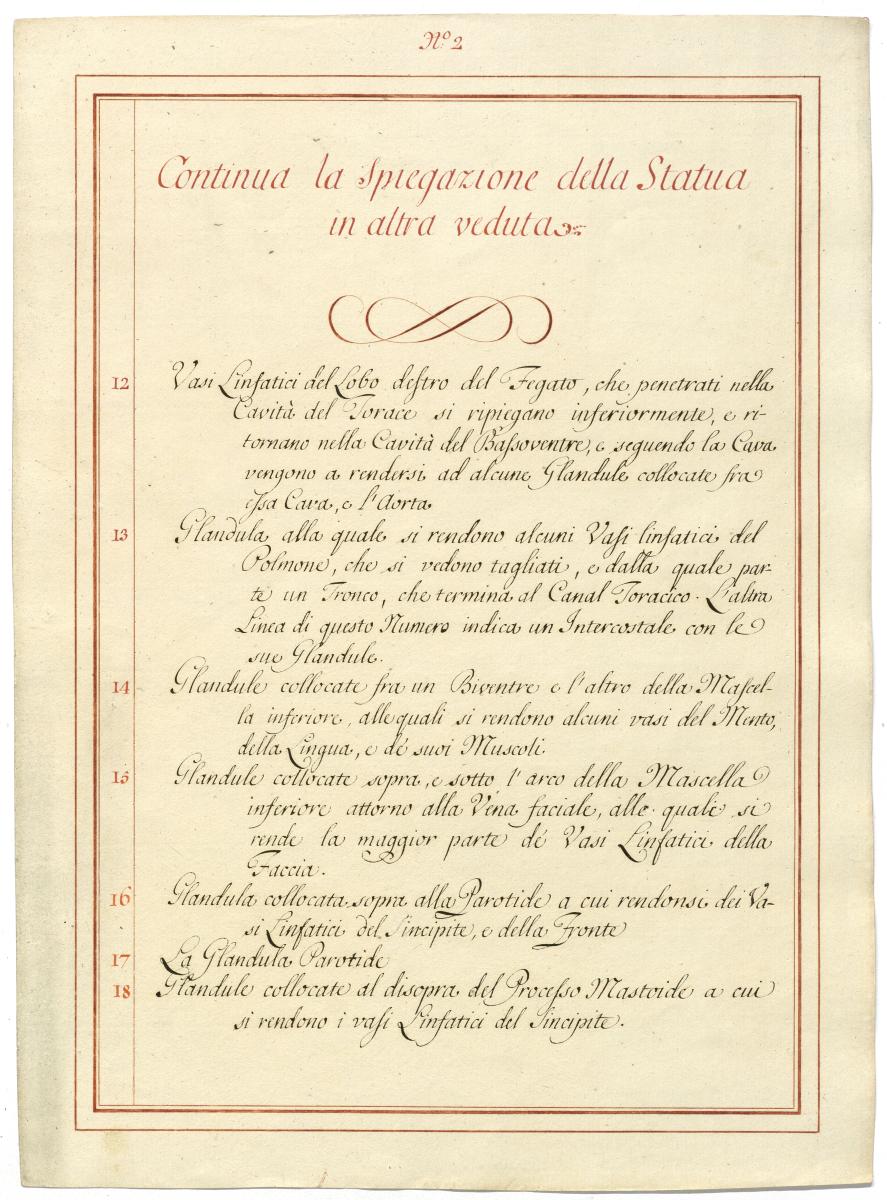 Nº 2
Continua la Spiegazione della Statua
in altra veduta
12 Vasi Linfatici del Lobo destro del Fegato, che penetrati nella
Cavità del Torace si ripiegano inferiormente, e ri-
tornano nella Cavità del Bassoventre, e seguendo la Cava
vengono a rendersi ad alcune Glandule collocate fra
essa Cava, e l'Aorta
13 Glandula alla quale si rendono alcuni Vasi linfatici del
Polmone, che si vedono tagliati, e dalla quale par-
te un Tronco, che termina al Canal Toracico. L'altra
Linea di questo Numero indica un Intercostale con le
sue Glandule.
14 Glandule collocate fra un Biventre e l'altro della Mascel-
la inferiore, alle quali si rendono alcuni vasi del Mento,
della Lingua, e dé suoi Muscoli
15 Glandule collocate sopra, e sotto l'arco della Mascella
inferiore attorno alla Vena faciale, alle quali si
rende la maggior parte dé Vasi Linfatici della
Faccia.
16 Glandula collocata sopra alla Parotide a cui rendonsi dei Va-
si Linfatici del Sincipite, e della Fronte
17 La Glandula Parotide
18 Glandule collocate al disopra del Processo Mastoide a cui
si rendono i vasi Linfatici del Sincipite.